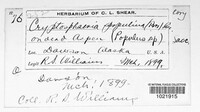 HERBARIUM OF C. L. SHEAR.
76
Cryptosphaeria populina (Pers)
on dead Aspen (Populus sp)
Loc. Dawson Alaska
Leg. R. S. Williams Mch. 1899.
Dawson
Mch. 1899.
Coll. R. S. Williams
1021915